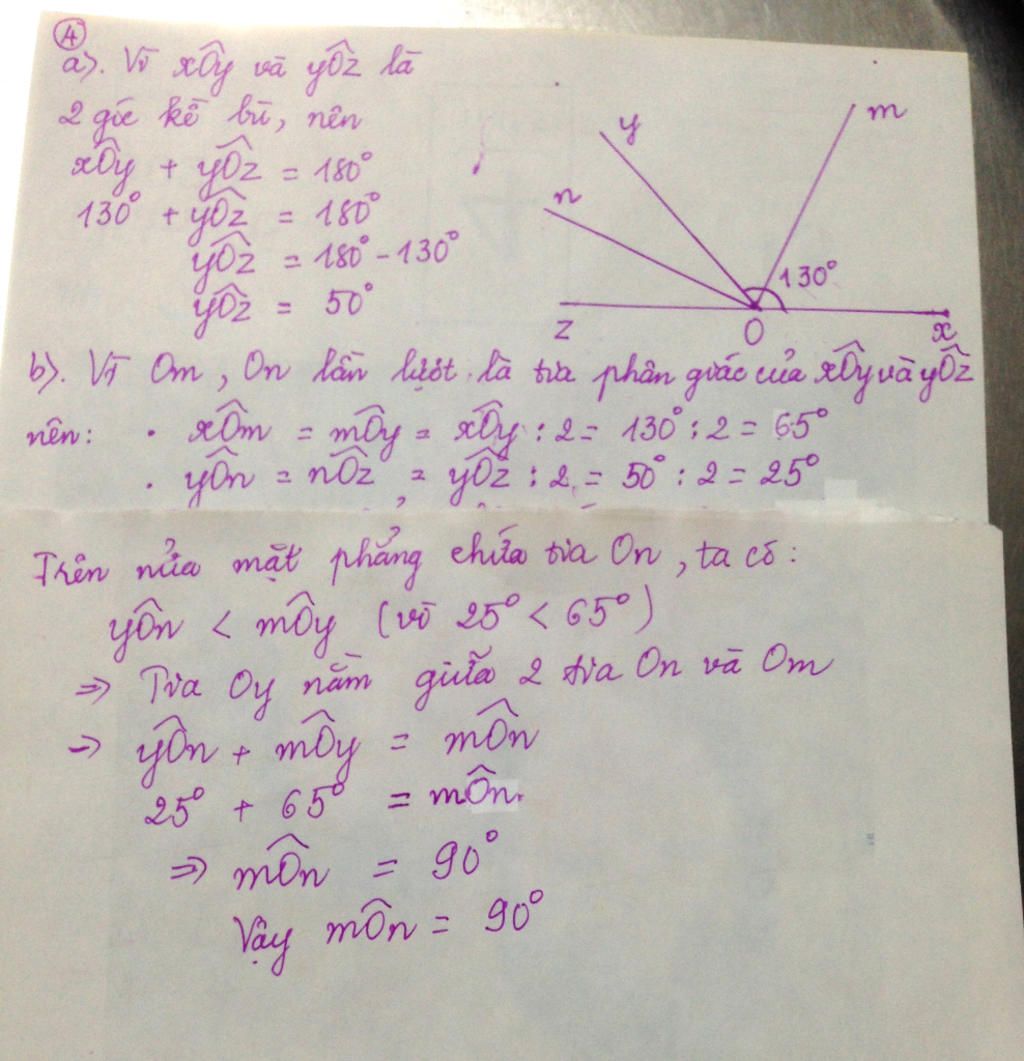 4
a). Vì xÔy và yÔz là
2 góc kề bù, nên
xÔy + yÔz = 180°
130° + yÔz = 180°
yÔz = 180° - 130°
yÔz = 50°
y
m
n
130°
z
O
x
b). Vì Om, On lần lượt là tia phân giác của xÔy và yÔz
nên: • xÔm = mÔy = xÔy : 2 = 130° : 2 = 65°
• yÔn = nÔz = yÔz : 2 = 50° : 2 = 25°
Trên nửa mặt phẳng chứa tia On, ta có:
yÔn < mÔy (vì 25° < 65°)
=> Tia Oy nằm giữa 2 tia On và Om
-> yÔn + mÔy = mÔn
25° + 65° = mÔn.
=> mÔn = 90°
Vậy mÔn = 90°